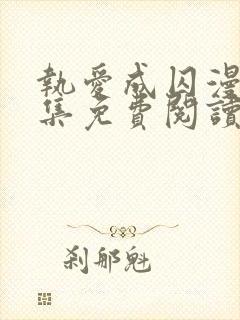 執愛成囚漫
集免費閱讀
刹那魁